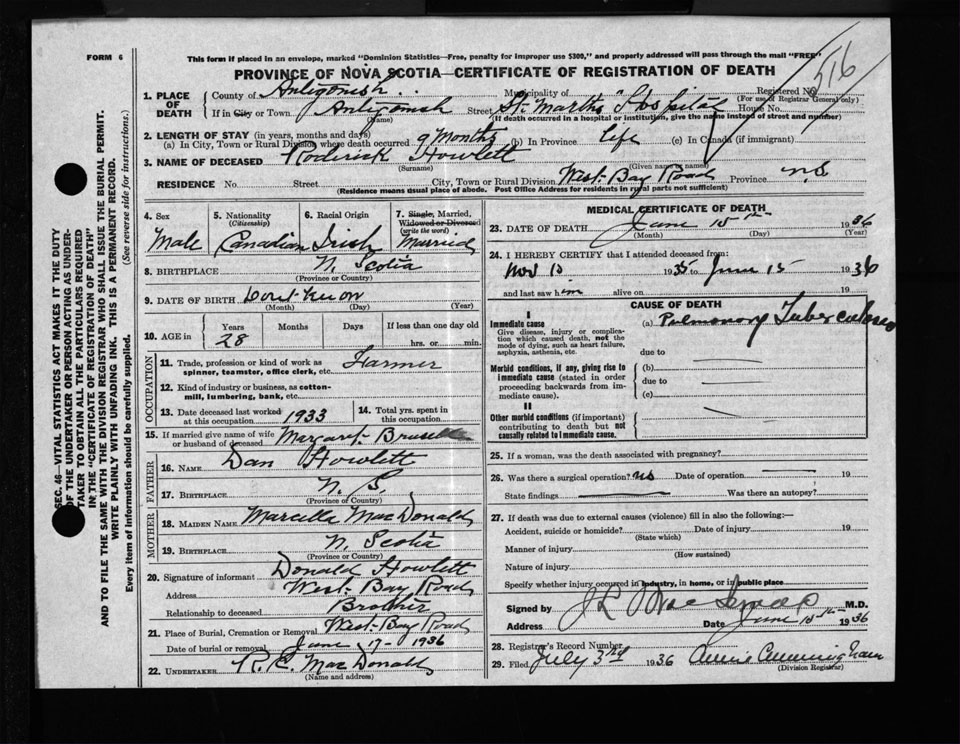 FORM 6
This form if placed in an envelope, marked "Dominion Statistics—Free, penalty for improper use $300," and properly addressed will pass through the mail "FREE"
PROVINCE OF NOVA SCOTIA—CERTIFICATE OF REGISTRATION OF DEATH
516
1. PLACE OF DEATH
County of Antigonish Municipality of Registered No.
(For use of Registrar General only)
If in City or Town Antigonish Street St. Martha's Hospital House No.
(Name) (If death occurred in a hospital or institution, give the name instead of street and number)
2. LENGTH OF STAY (in years, months and days)
(a) In City, Town or Rural Division where death occurred 9 Months (b) In Province life (c) In Canada (if immigrant)
3. NAME OF DECEASED Roderick Howlett
(Surname) (Given name or names)
RESIDENCE No. Street City, Town or Rural Division West Bay Road Province N.S.
(Residence means usual place of abode. Post Office Address for residents in rural parts not sufficient)
4. Sex Male
5. Nationality (Citizenship) Canadian
6. Racial Origin Irish
7. Single, Married, Widowed or Divorced (write the word) Married
8. BIRTHPLACE N. Scotia
(Province or Country)
9. DATE OF BIRTH Dont Know
(Month) (Day) (Year)
10. AGE in Years 28 Months Days If less than one day old hrs. or min.
OCCUPATION
11. Trade, profession or kind of work as spinner, teamster, office clerk, etc. Farmer
12. Kind of industry or business, as cotton-mill, lumbering, bank, etc.
13. Date deceased last worked at this occupation 1933
14. Total yrs. spent in this occupation
15. If married give name of wife or husband of deceased Margaret
FATHER
16. NAME Dan Howlett
17. BIRTHPLACE N. S.
(Province or Country)
MOTHER
18. MAIDEN NAME Marcella MacDonald
19. BIRTHPLACE N. Scotia
(Province or Country)
20. Signature of informant Donald Howlett
Address West Bay Road
Relationship to deceased Brother
21. Place of Burial, Cremation or Removal West Bay Road
Date of burial or removal June 17 1936
22. UNDERTAKER R.C. MacDonald
(Name and address)
MEDICAL CERTIFICATE OF DEATH
23. DATE OF DEATH June 15th 1936
(Month) (Day) (Year)
24. I HEREBY CERTIFY that I attended deceased from:
1935 to June 15 1936
and last saw him alive on 19
CAUSE OF DEATH
I
Immediate cause
Give disease, injury or complication which caused death, not the mode of dying, such as heart failure, asphyxia, asthenia, etc.
(a) Pulmonary Tuberculosis
due to
Morbid conditions, if any, giving rise to immediate cause (stated in order proceeding backwards from immediate cause).
(b)
due to
(c)
II
Other morbid conditions (if important) contributing to death but not causally related to immediate cause.
25. If a woman, was the death associated with pregnancy?
26. Was there a surgical operation? no Date of operation 19
State findings Was there an autopsy?
27. If death was due to external causes (violence) fill in also the following:—
Accident, suicide or homicide? Date of injury 19
(State which)
Manner of injury
(How sustained)
Nature of injury
Specify whether injury occurred in industry, in home, or in public place
Signed by M.D.
Address Date June 15th 1936
28. Registrar's Record Number
29. Filed July 3rd 1936 Annie Cunningham
(Division Registrar)
SEC. 46—VITAL STATISTICS ACT MAKES IT THE DUTY
OF THE UNDERTAKER OR PERSON ACTING AS UNDER-
TAKER TO OBTAIN ALL THE PARTICULARS REQUIRED
IN THE "CERTIFICATE OF REGISTRATION OF DEATH"
AND TO FILE THE SAME WITH THE DIVISION REGISTRAR WHO SHALL ISSUE THE BURIAL PERMIT.
WRITE PLAINLY WITH UNFADING INK. THIS IS A PERMANENT RECORD.
Every item of information should be carefully supplied. (See reverse side for instructions.)